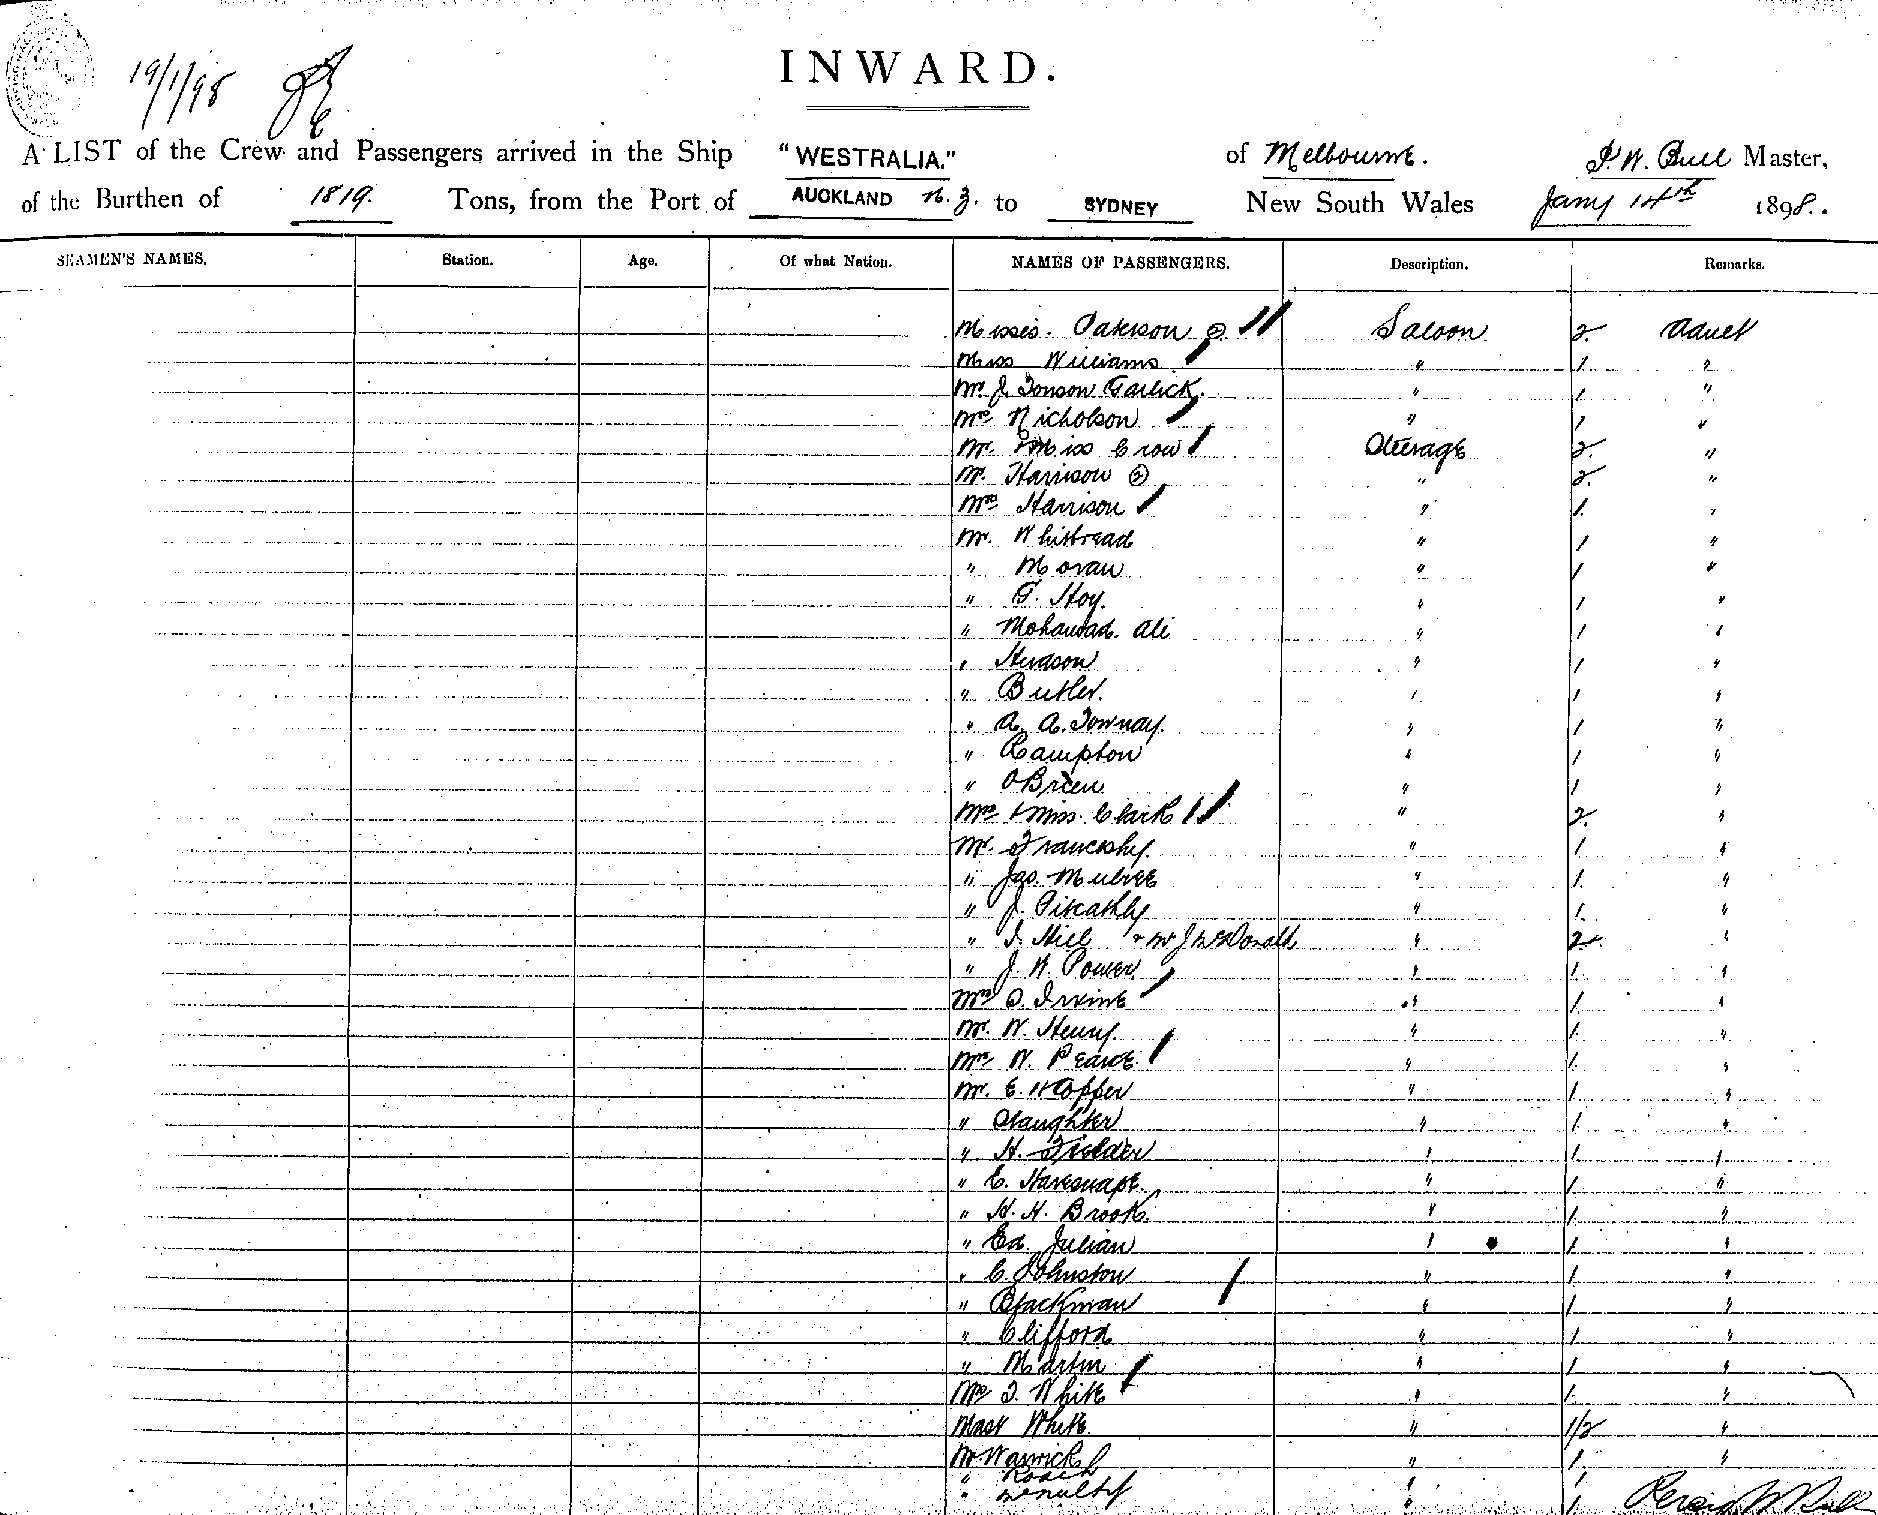 19/1/98
INWARD.
A LIST of the Crew and Passengers arrived in the Ship "WESTRALIA." of Melbourne. Bull Master,
of the Burthen of 1819. Tons, from the Port of AUCKLAND N.Z. to SYDNEY New South Wales Jany 14th 1898.
SEAMEN'S NAMES. Station. Age. Of what Nation. NAMES OF PASSENGERS. Description. Remarks.
Misses. Paterson 2 Saloon 2. Adult
Miss Williams " 1. "
Mr. J. Tonson Garlick. " 1 "
Mrs Nicholson " 1 "
Mr. & Miss Crow Steerage 2. "
Mr. Harrison 2 " 2. "
Mrs Harrison " 1. "
Mr. Whitbread " 1 "
" Moran " 1 "
" G. Hoy. " 1 "
" Ali " 1 "
" Hudson " 1 "
" Butler. " 1 "
" A. A. " 1 "
" " 1 "
" OBrien " 1 "
Mrs & Miss. Clark " 2. "
Mr. " 1 "
" Jas. " 1. "
" J. Pitcathly " 1. "
" Hill & Mr J McDonald " 2. "
" J. W. Power " 1. "
Mrs Irvine " 1. "
Mr. W. Henry. " 1. "
Mrs W. Pearce. " 1. "
Mr. E. " 1. "
" Slaughter " 1. "
" H. Fielder " 1. "
" E. Haresnape. " 1 "
" H. H. Brook. " 1. "
" Ed. Julian " 1 "
" C. Johnston " 1. "
" Blackman " 1 "
" Clifford " 1 "
" Martin " 1 "
Mrs White " 1. "
Mast White " 1/2 "
Mr Warwick " 1. "
" Roach " 1
" " 1.